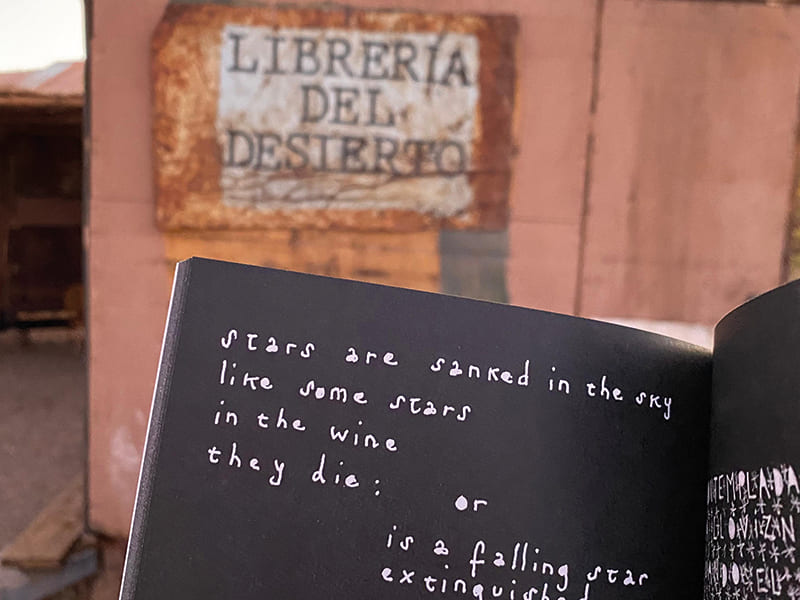 LIBRERÍA
DEL
DESIERTO
stars are sanked in the sky
like some stars
in the wine
they die:
or
is a falling star
extinguished